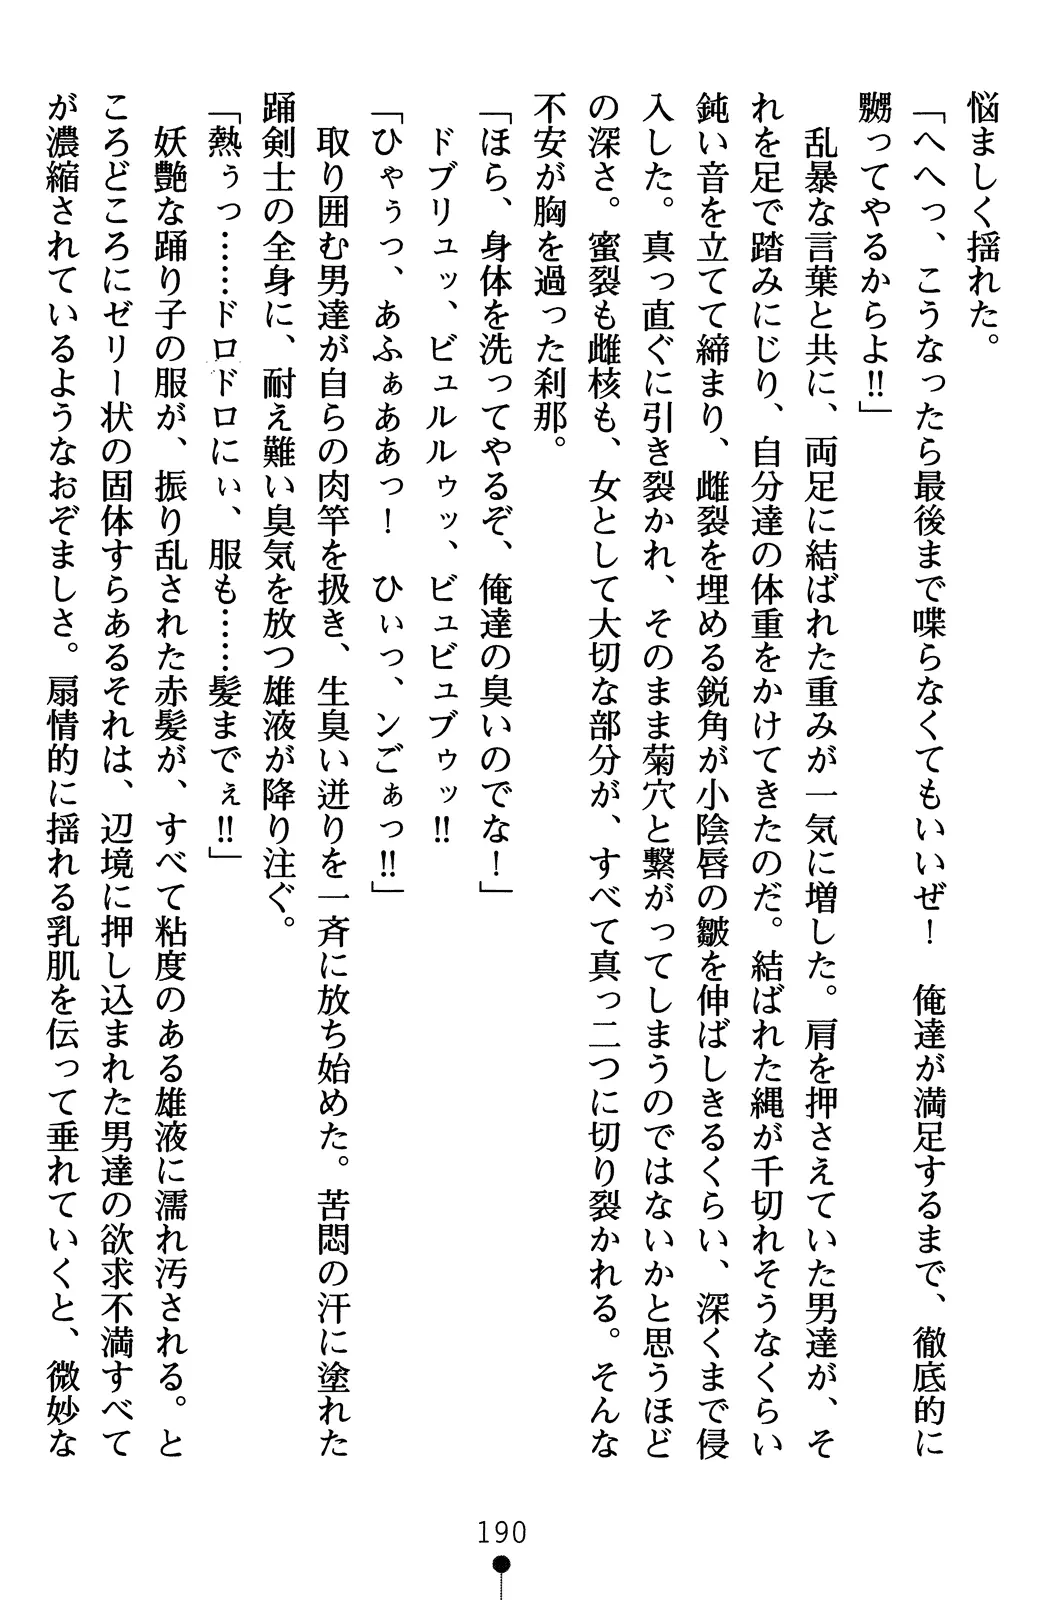 悩ましく揺れた。
「へへっ、こうなったら最後まで喋らなくてもいいぜ！　俺達が満足するまで、徹底的に
嬲ってやるからよ‼」
　乱暴な言葉と共に、両足に結ばれた重みが一気に増した。肩を押さえていた男達が、そ
れを足で踏みにじり、自分達の体重をかけてきたのだ。結ばれた縄が千切れそうなくらい
鈍い音を立てて締まり、雌裂を埋める鋭角が小陰唇の皺を伸ばしきるくらい、深くまで侵
入した。真っ直ぐに引き裂かれ、そのまま菊穴と繋がってしまうのではないかと思うほど
の深さ。蜜裂も雌核も、女として大切な部分が、すべて真っ二つに切り裂かれる。そんな
不安が胸を過った刹那。
「ほら、身体を洗ってやるぞ、俺達の臭いのでな！」
　ドブリュッ、ビュルルゥッ、ビュビュブゥッ‼
「ひゃぅっ、あふぁああっ！　ひぃっ、ンごぁっ‼」
　取り囲む男達が自らの肉竿を扱き、生臭い迸りを一斉に放ち始めた。苦悶の汗に塗れた
踊剣士の全身に、耐え難い臭気を放つ雄液が降り注ぐ。
「熱ぅっ……ドロドロにぃ、服も……髪までぇ‼」
　妖艶な踊り子の服が、振り乱された赤髪が、すべて粘度のある雄液に濡れ汚される。と
ころどころにゼリー状の固体すらあるそれは、辺境に押し込まれた男達の欲求不満すべて
が濃縮されているようなおぞましさ。扇情的に揺れる乳肌を伝って垂れていくと、微妙な
190